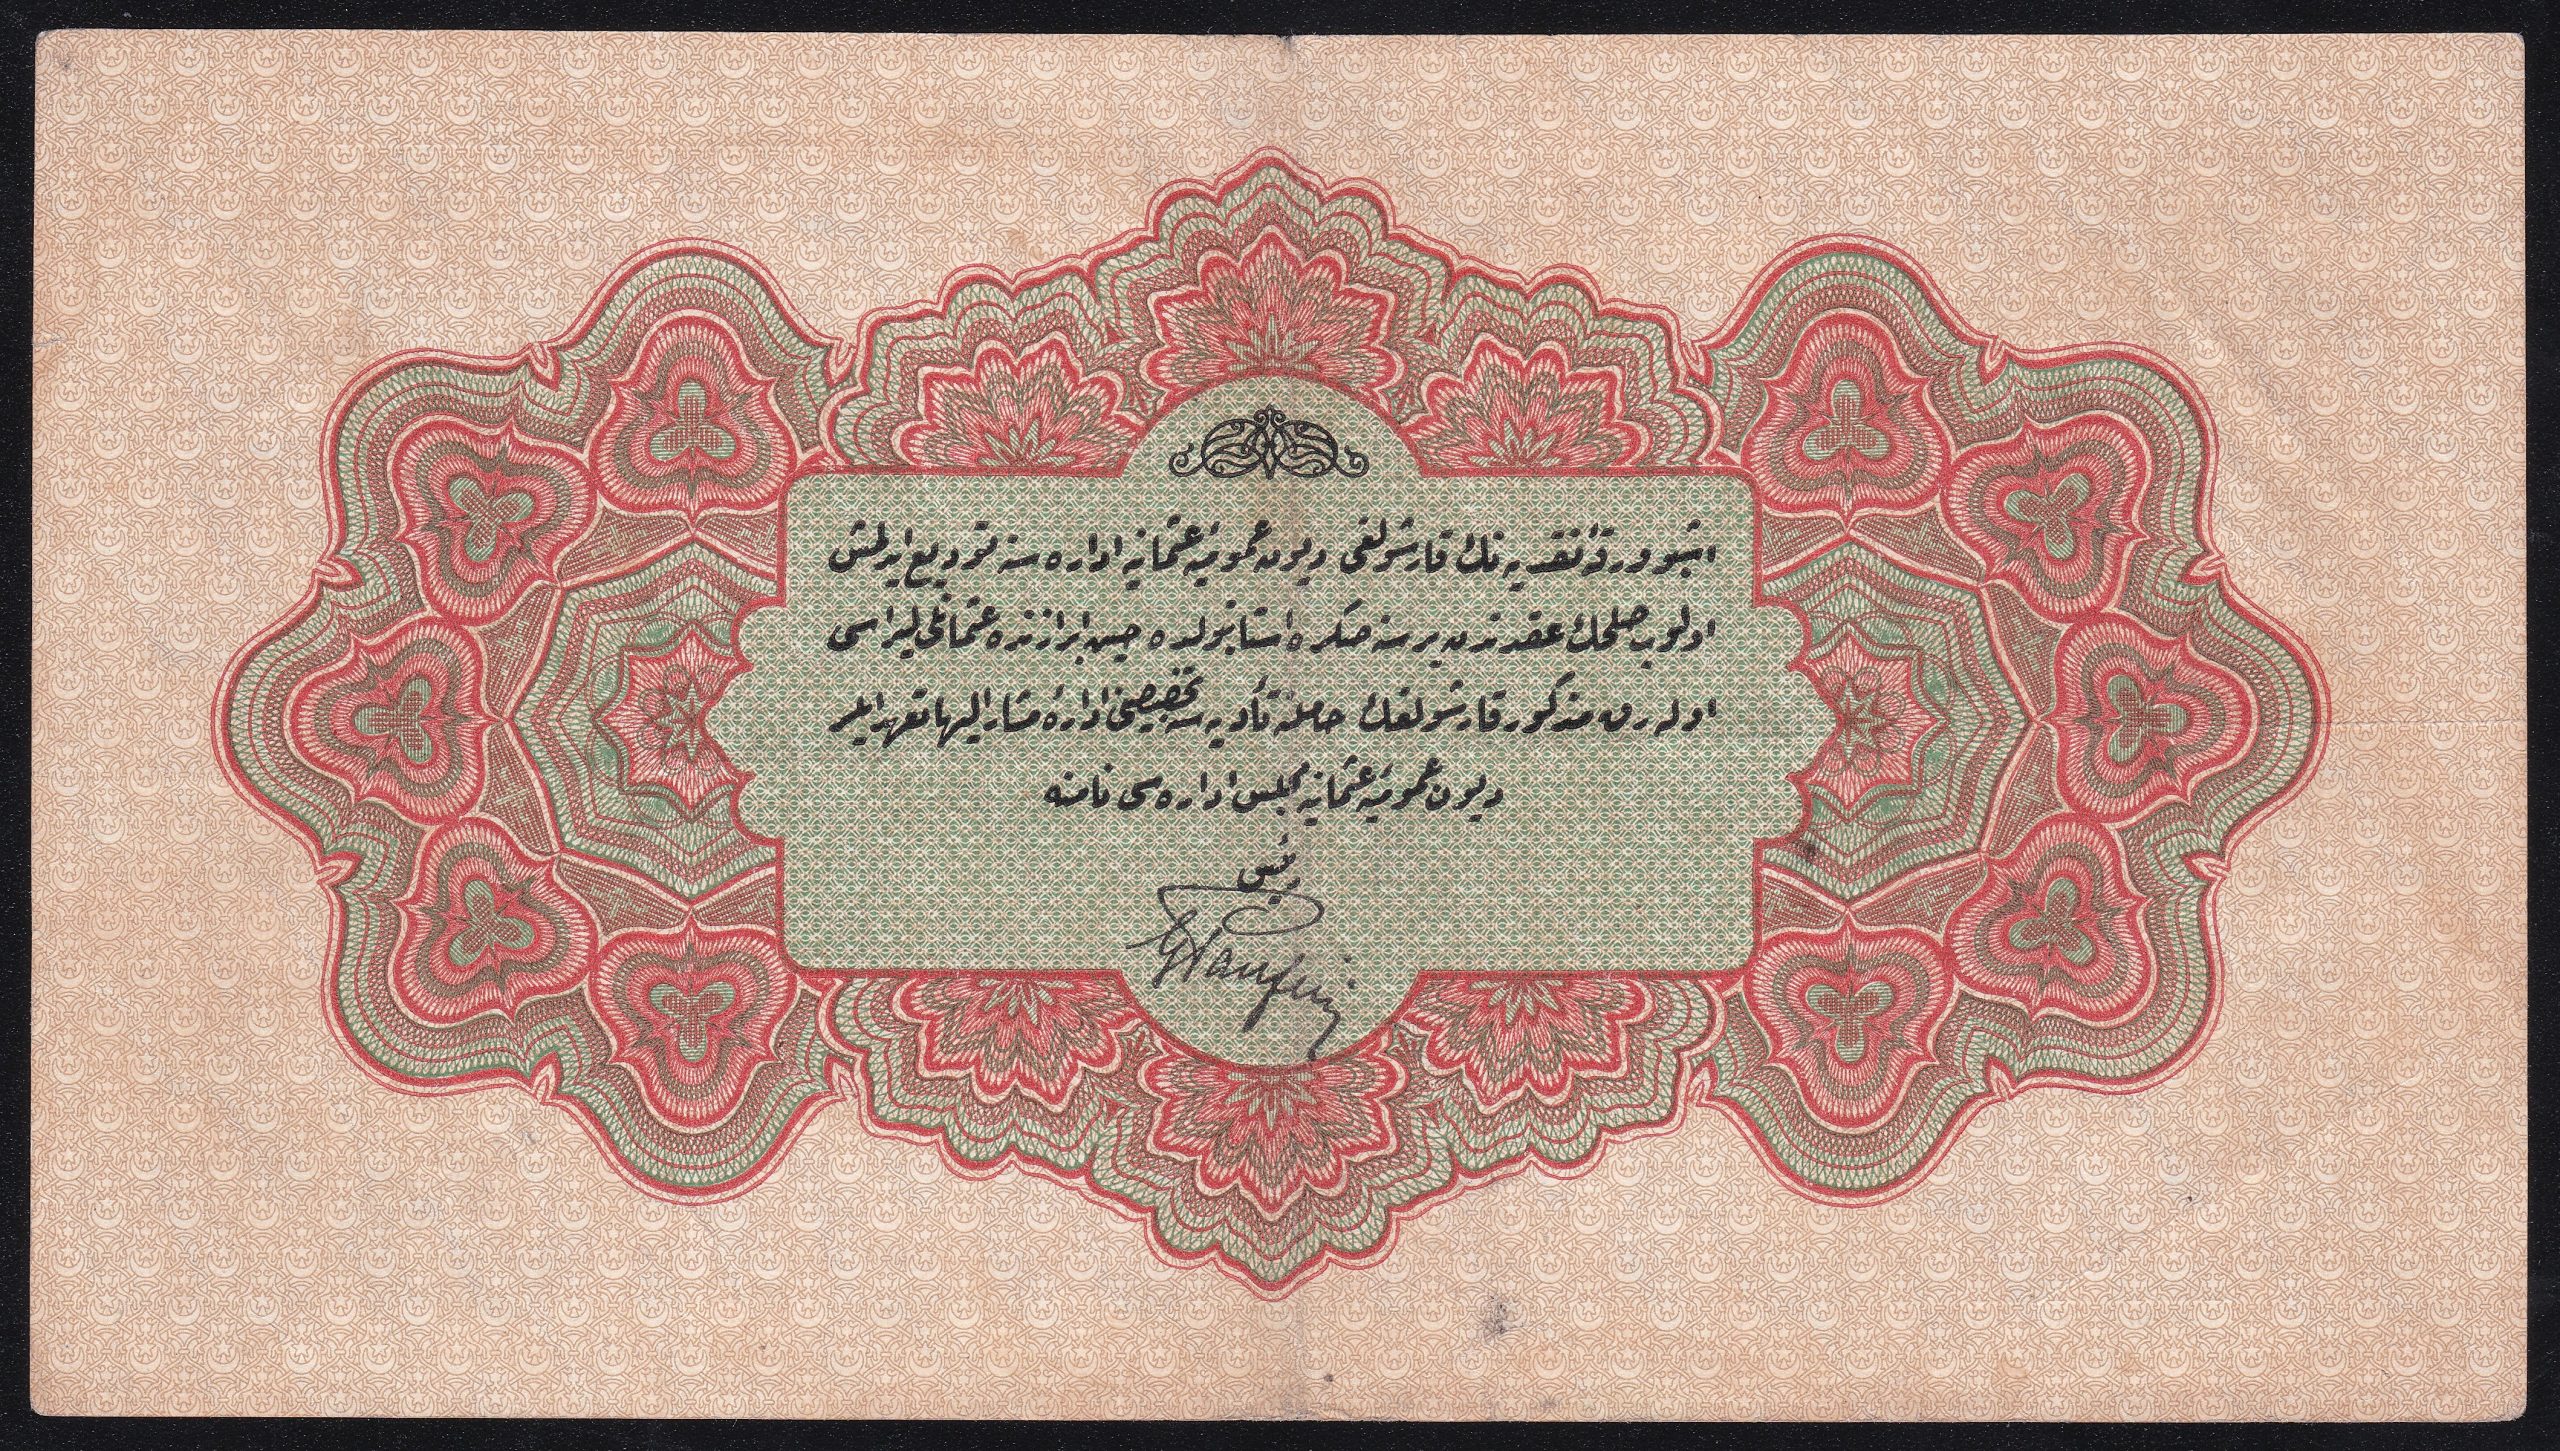 اشبو ورقهٔ نقدیه نك قارشولغی دیون عمومیهٔ عثمانیه اداره سنه تودیع ایدلمش
اولوب صلحك عقدندن بر سنه صكره استانبولده حین ابرازنده عثمانلی لیراسی
اوله رق مذكور قارشولغك حاملنه تأدیه سنه تخصیصنی ادارهٔ مشار الیها تعهد ایلر
دیون عمومیهٔ عثمانیه مجلس اداره سی نامنه
رئیسی